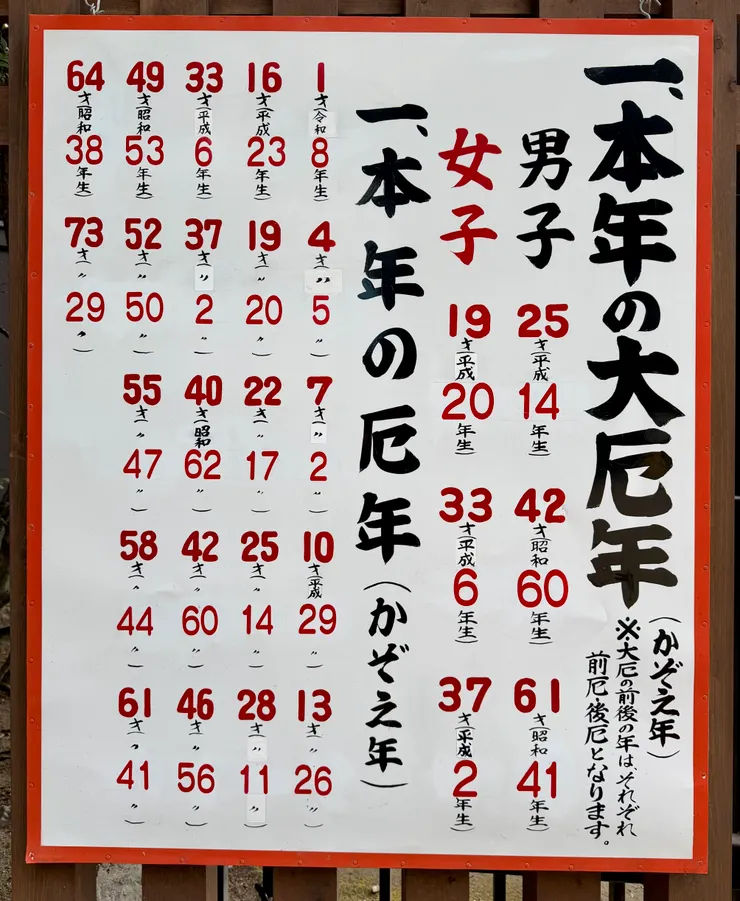 一、本年の大厄年(かぞえ年)
※大厄の前後の年はそれぞれ
前厄・後厄となります。
男子
25才(平成14年生)
42才(昭和60年生)
61才(昭和41年生)
女子
19才(平成20年生)
33才(平成6年生)
37才(平成2年生)
一、本年の厄年(かぞえ年)
1才(令和8年生)
4才(〃5〃)
7才(〃2〃)
10才(平成29〃)
13才(〃26〃)
16才(平成23年生)
19才(〃20〃)
22才(〃17〃)
25才(〃14〃)
28才(〃11〃)
33才(平成6年生)
37才(〃2〃)
40才(昭和62〃)
42才(〃60〃)
46才(〃56〃)
49才(昭和53年生)
52才(〃50〃)
55才(〃47〃)
58才(〃44〃)
61才(〃41〃)
64才(昭和38年生)
73才(〃29〃)